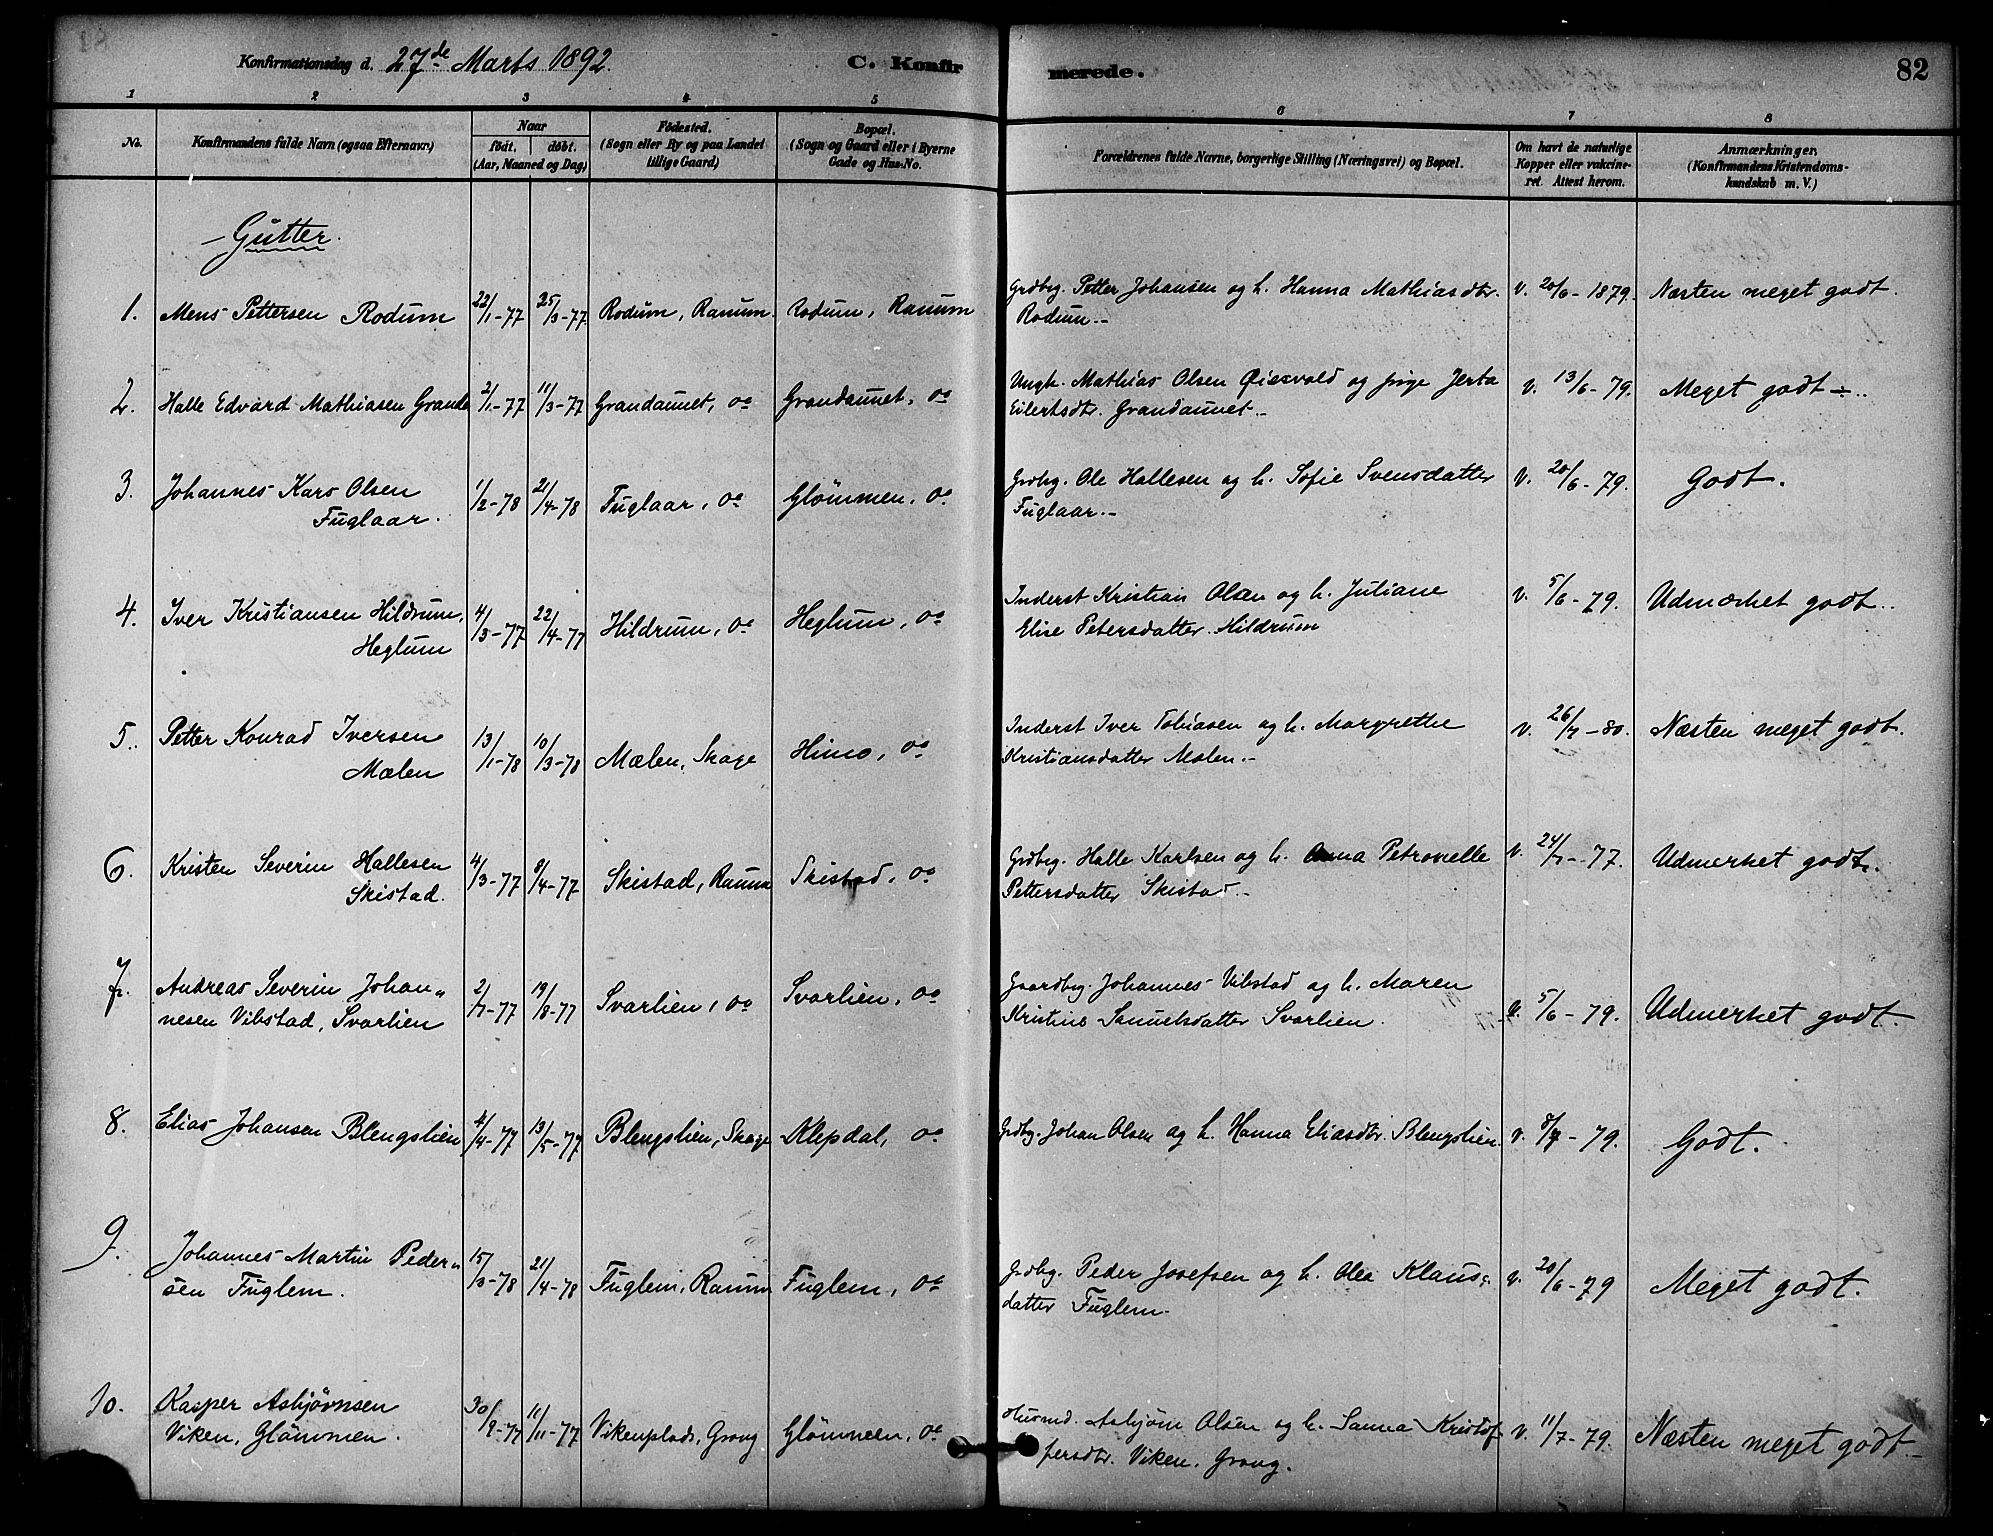 Konfirmationsdag d. 27de Marts 1892. C. Konfir merede. 82
1 2 3 4 5 6 7 8
No. Konfirmandens fulde Navn (ogsaa Efternavn)
Naar
født. døbt.
(Aar, Maaned og Dag)
Fødested.
(Sogn eller By og paa Landet
tillige Gaard)
Bopæl.
(Sogn og Gaard eller i Byerne
Gade og Hus-No.
Forældrenes fulde Navne, borgerlige Stilling (Næringsvei) og Bopæl.
Om havt de naturlige
Kopper eller vakcine-
ret. Attest herom.
Anmærkninger.
(Konfirmandens Kristendoms-
kundskab m. V.)
Gutter.
1. Mens Pettersen Rodum 22/1-77 25/3-77 Rodum, Ranum. Rodum, Ranum Grdbrg. Petter Johansen og h. Hanna Mathiasdtr. V. 20/6-1879. Næsten meget godt.
Rodum.-
2. Halle Edvard Mathiasen Grande 2/1-77 11/3-77 Grandaunet, do Grandaunet, do Ungk. Mathias Olsen Øiesvold og pige Jerta V. 13/6-79. Meget godt ÷.
Eilertsdtr. Grandaunet.-
3. Johannes Karo Olsen 1/2-78 21/4-78 Fuglaar, do Glömmen, do Grdbrg. Ole Hallesen og h. Sofie Svensdatter V. 20/6-79. Godt.
Fuglaar. Fuglaar.-
4. Iver Kristiansen Hildrum, 4/3-77 22/4-77 Hildrum, do Heglum, do Inderst Kristian Olsen og h. Juliane V. 5/6-79. Udmærket godt.
Heglum Elise Petersdatter Hildrum
5. Petter Konrad Iversen 13/1-78 10/3-78 Mælen, Skage Himo, do Inderst Iver Tobiasen og h. Margrethe V. 26/7-80. Næsten meget godt.
Mælen Kristiansdatter Mælen.-
6. Kristen Severin Hallesen 4/3-77 9/4-77 Skistad, Ranum Skistad, do Grdbrg. Halle Karlsen og h. Anna Petronelle V. 24/7-77. Udmerket godt.
Skistad. Pettersdatter Skistad.-
7. Andreas Severin Johan„ 2/7-77 19/8-77 Svarlien, do Svarlien, do Gaardbrg. Johannes Vibstad og h. Maren V. 5/6-79. Udmerket godt.
nesen Vibstad, Svarlien Kristine Samuelsdatter Svarlien.
8. Elias Johansen Blengslien 4/4-77 13/5-77 Blengslien, Skage Klepdal, do Grdbrg. Johan Olsen og h. Hanna Eliasdtr. Blengslien. V. 8/7-79. Godt.
9. Johannes Martin Peder„ 15/3-78 21/4-78 Fuglem, Ranum Fuglem, do Grdbrg. Peder Josefsen og h. Olea Klaus„ V. 20/6-79 Meget godt.
sen Fuglem. datter Fuglem.
10. Kasper Asbjørnsen 30/9-77 11/11-77 Vikenplads, Grong Glömmen, do Husmd. Asbjørn Olsen og h. Sanna Kristof V. 11/7-79. Næsten meget godt.-
Viken, Glömmen. persdtr. Viken. Grong.